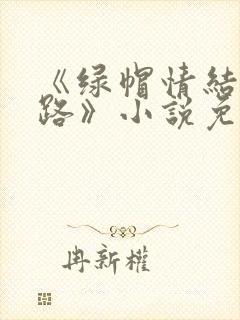 《绿帽情結
路》小説免
冉新權